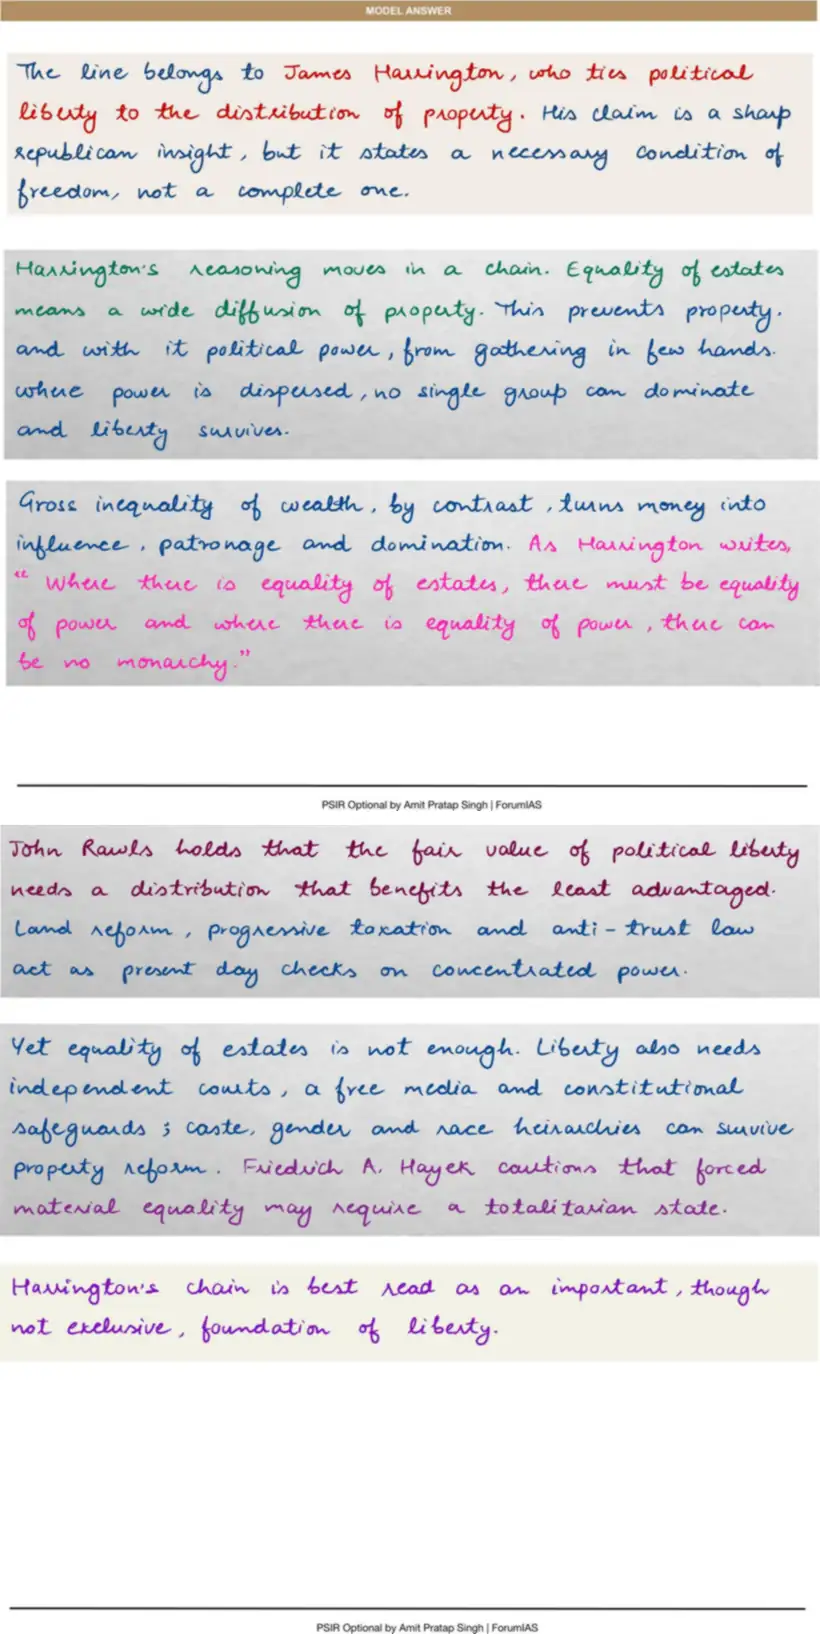 MODEL ANSWER
The line belongs to James Harrington, who ties political
liberty to the distribution of property. His claim is a sharp
republican insight, but it states a necessary condition of
freedom, not a complete one.
Harrington's reasoning moves in a chain. Equality of estates
means a wide diffusion of property. This prevents property,
and with it political power, from gathering in few hands.
where power is dispersed, no single group can dominate
and liberty survives.
Gross inequality of wealth, by contrast, turns money into
influence, patronage and domination. As Harrington writes,
"Where there is equality of estates, there must be equality
of power and where there is equality of power, there can
be no monarchy."
PSIR Optional by Amit Pratap Singh | ForumIAS
John Rawls holds that the fair value of political liberty
needs a distribution that benefits the least advantaged.
Land reform, progressive taxation and anti-trust law
act as present day checks on concentrated power.
Yet equality of estates is not enough. Liberty also needs
independent courts, a free media and constitutional
safeguards; caste, gender and race heirarchies can survive
property reform. Friedrich A. Hayek cautions that forced
material equality may require a totalitarian state.
Harrington's chain is best read as an important, though
not exclusive, foundation of liberty.
PSIR Optional by Amit Pratap Singh | ForumIAS